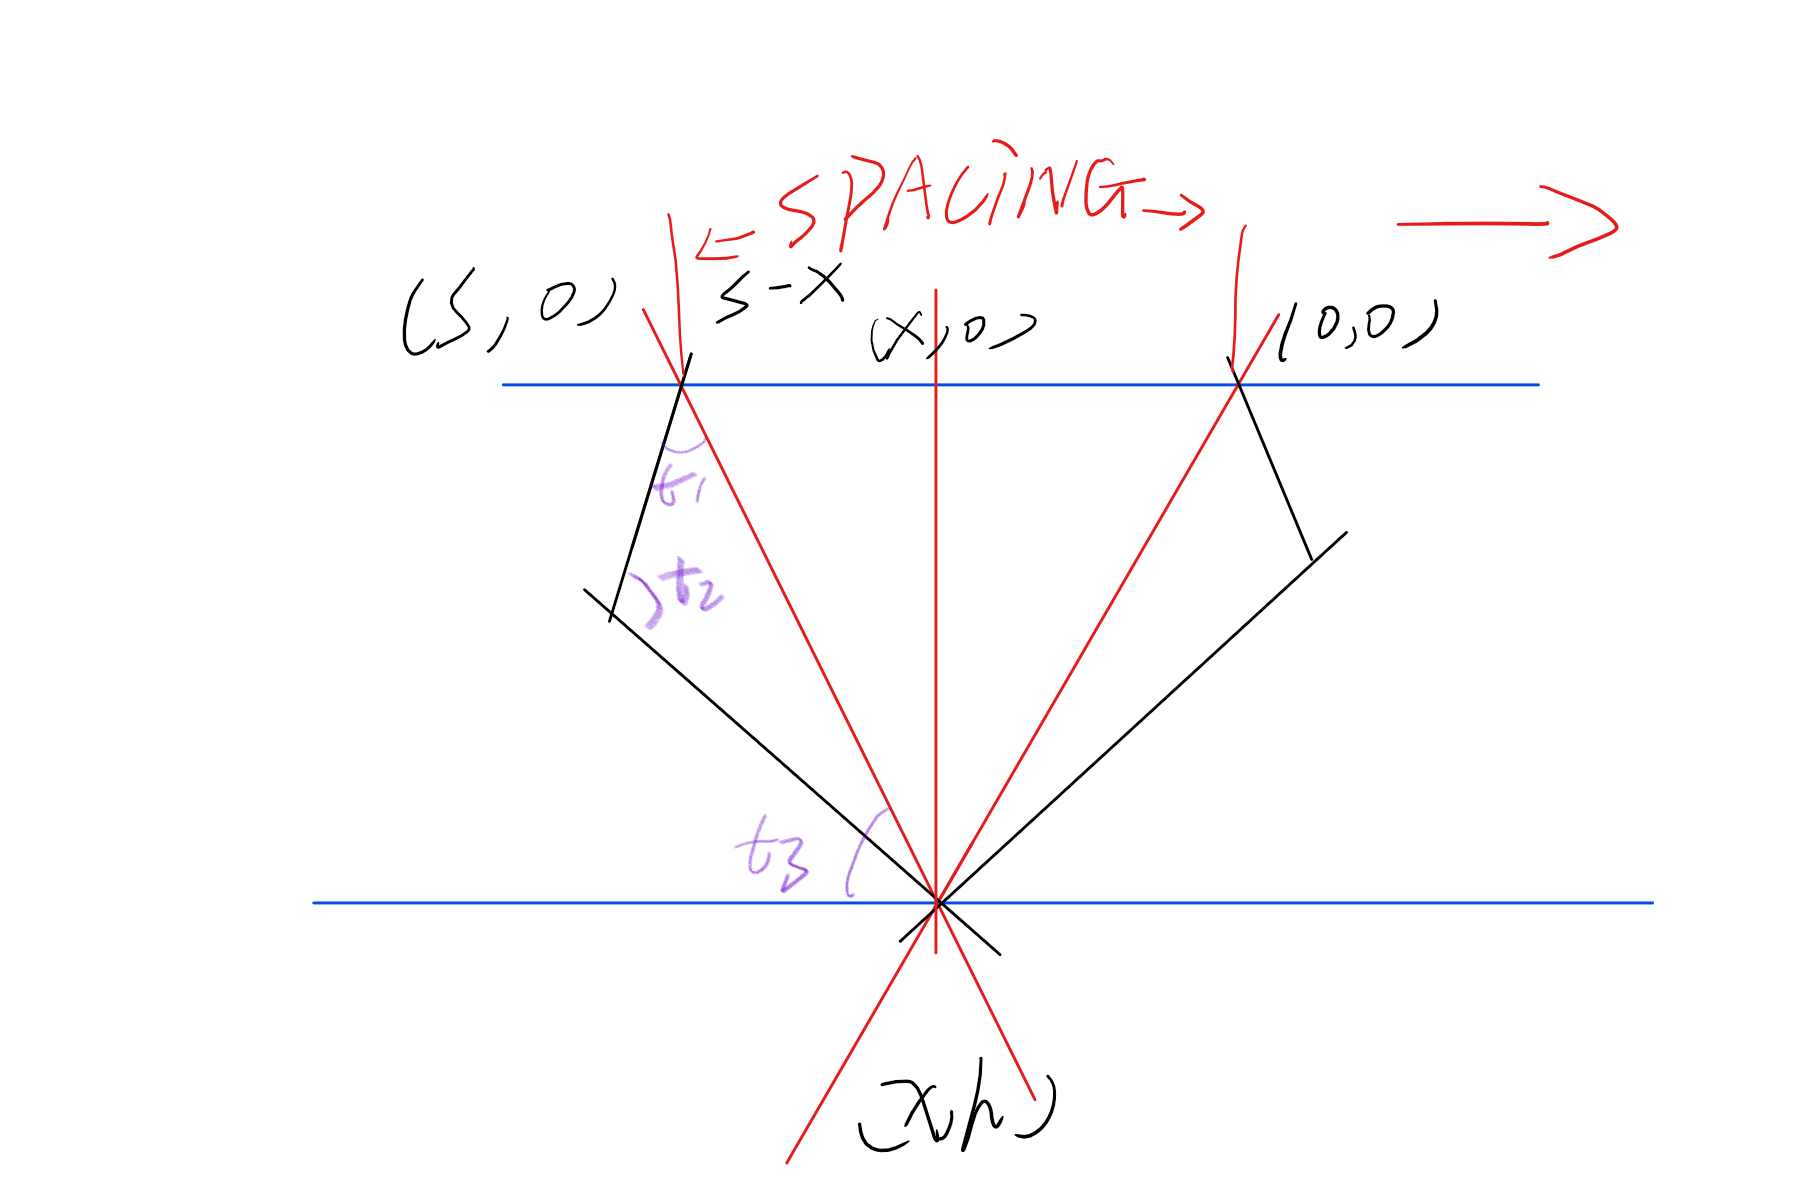 ← SPACING →
(S, 0)
S-X
(X, 0)
(0,0)
t1
t2
t3
(x,h)